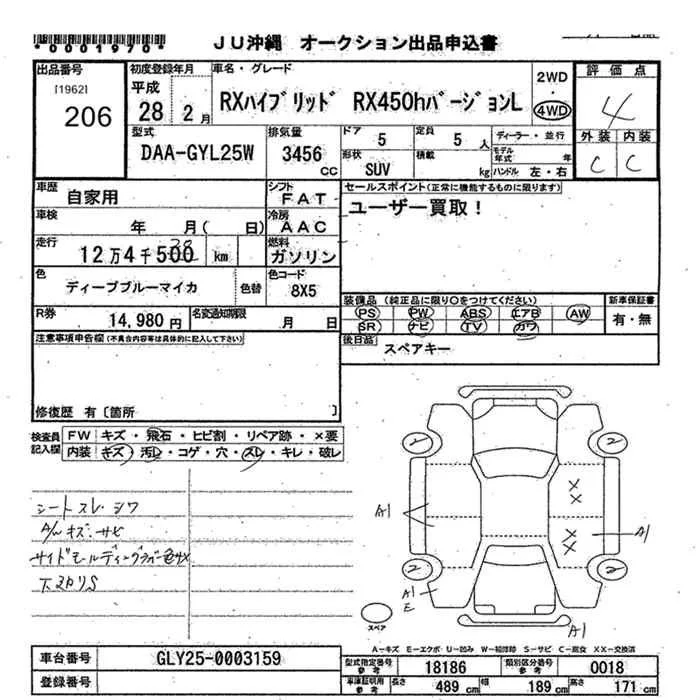 *0001970*
JU沖縄 オークション出品申込書
出品番号
[1962]
206
初度登録年月
平成
28 年 2 月
車名・グレード
RXハイブリッド RX450hバージョンL
2WD
4WD
評価点
4
外装 内装
C C
型式
DAA-GYL25W
排気量
3456 cc
ドア
5
定員
5 人
形状
SUV
積載
kg
ディーラー・並行
モデル年式 年
ハンドル 左・右
車歴
自家用
シフト
FAT
セールスポイント(正常に機能するものに限ります)
ユーザー買取!
車検
年 月( 日)
冷房
AAC
走行
12万4千500 km
38
燃料
ガソリン
色
ディープブルーマイカ
色替
色コード
8X5
R券
14,980円
名変通知期限
月 日
装備品 (純正品に限り○をつけてください)
PS PW ABS エアB AW
SR ナビ TV カワ
新車保証書
有・無
後日品
スペアキー
注意事項申告欄(不具合内容等は具体的に記入して下さい)
修復歴 有〔箇所 〕
検査員記入欄
FW キズ・飛石・ヒビ割・リペア跡・×要
内装 キズ・汚レ・コゲ・穴・スレ・キレ・破レ
シートスレ シワ
A/W キズ・サビ
下スリS
2 2
2 2
A1
A1
A1
E
A1
××
××
スペア
A−キズ E−エクボ U−凹み W−補修跡 S−サビ C−腐食 XX−交換済
車台番号
GLY25-0003159
登録番号
型式指定番号 参考
18186
類別区分番号 参考
0018
車庫証明用 参考
長さ 489 cm
幅 189 cm
高さ 171 cm